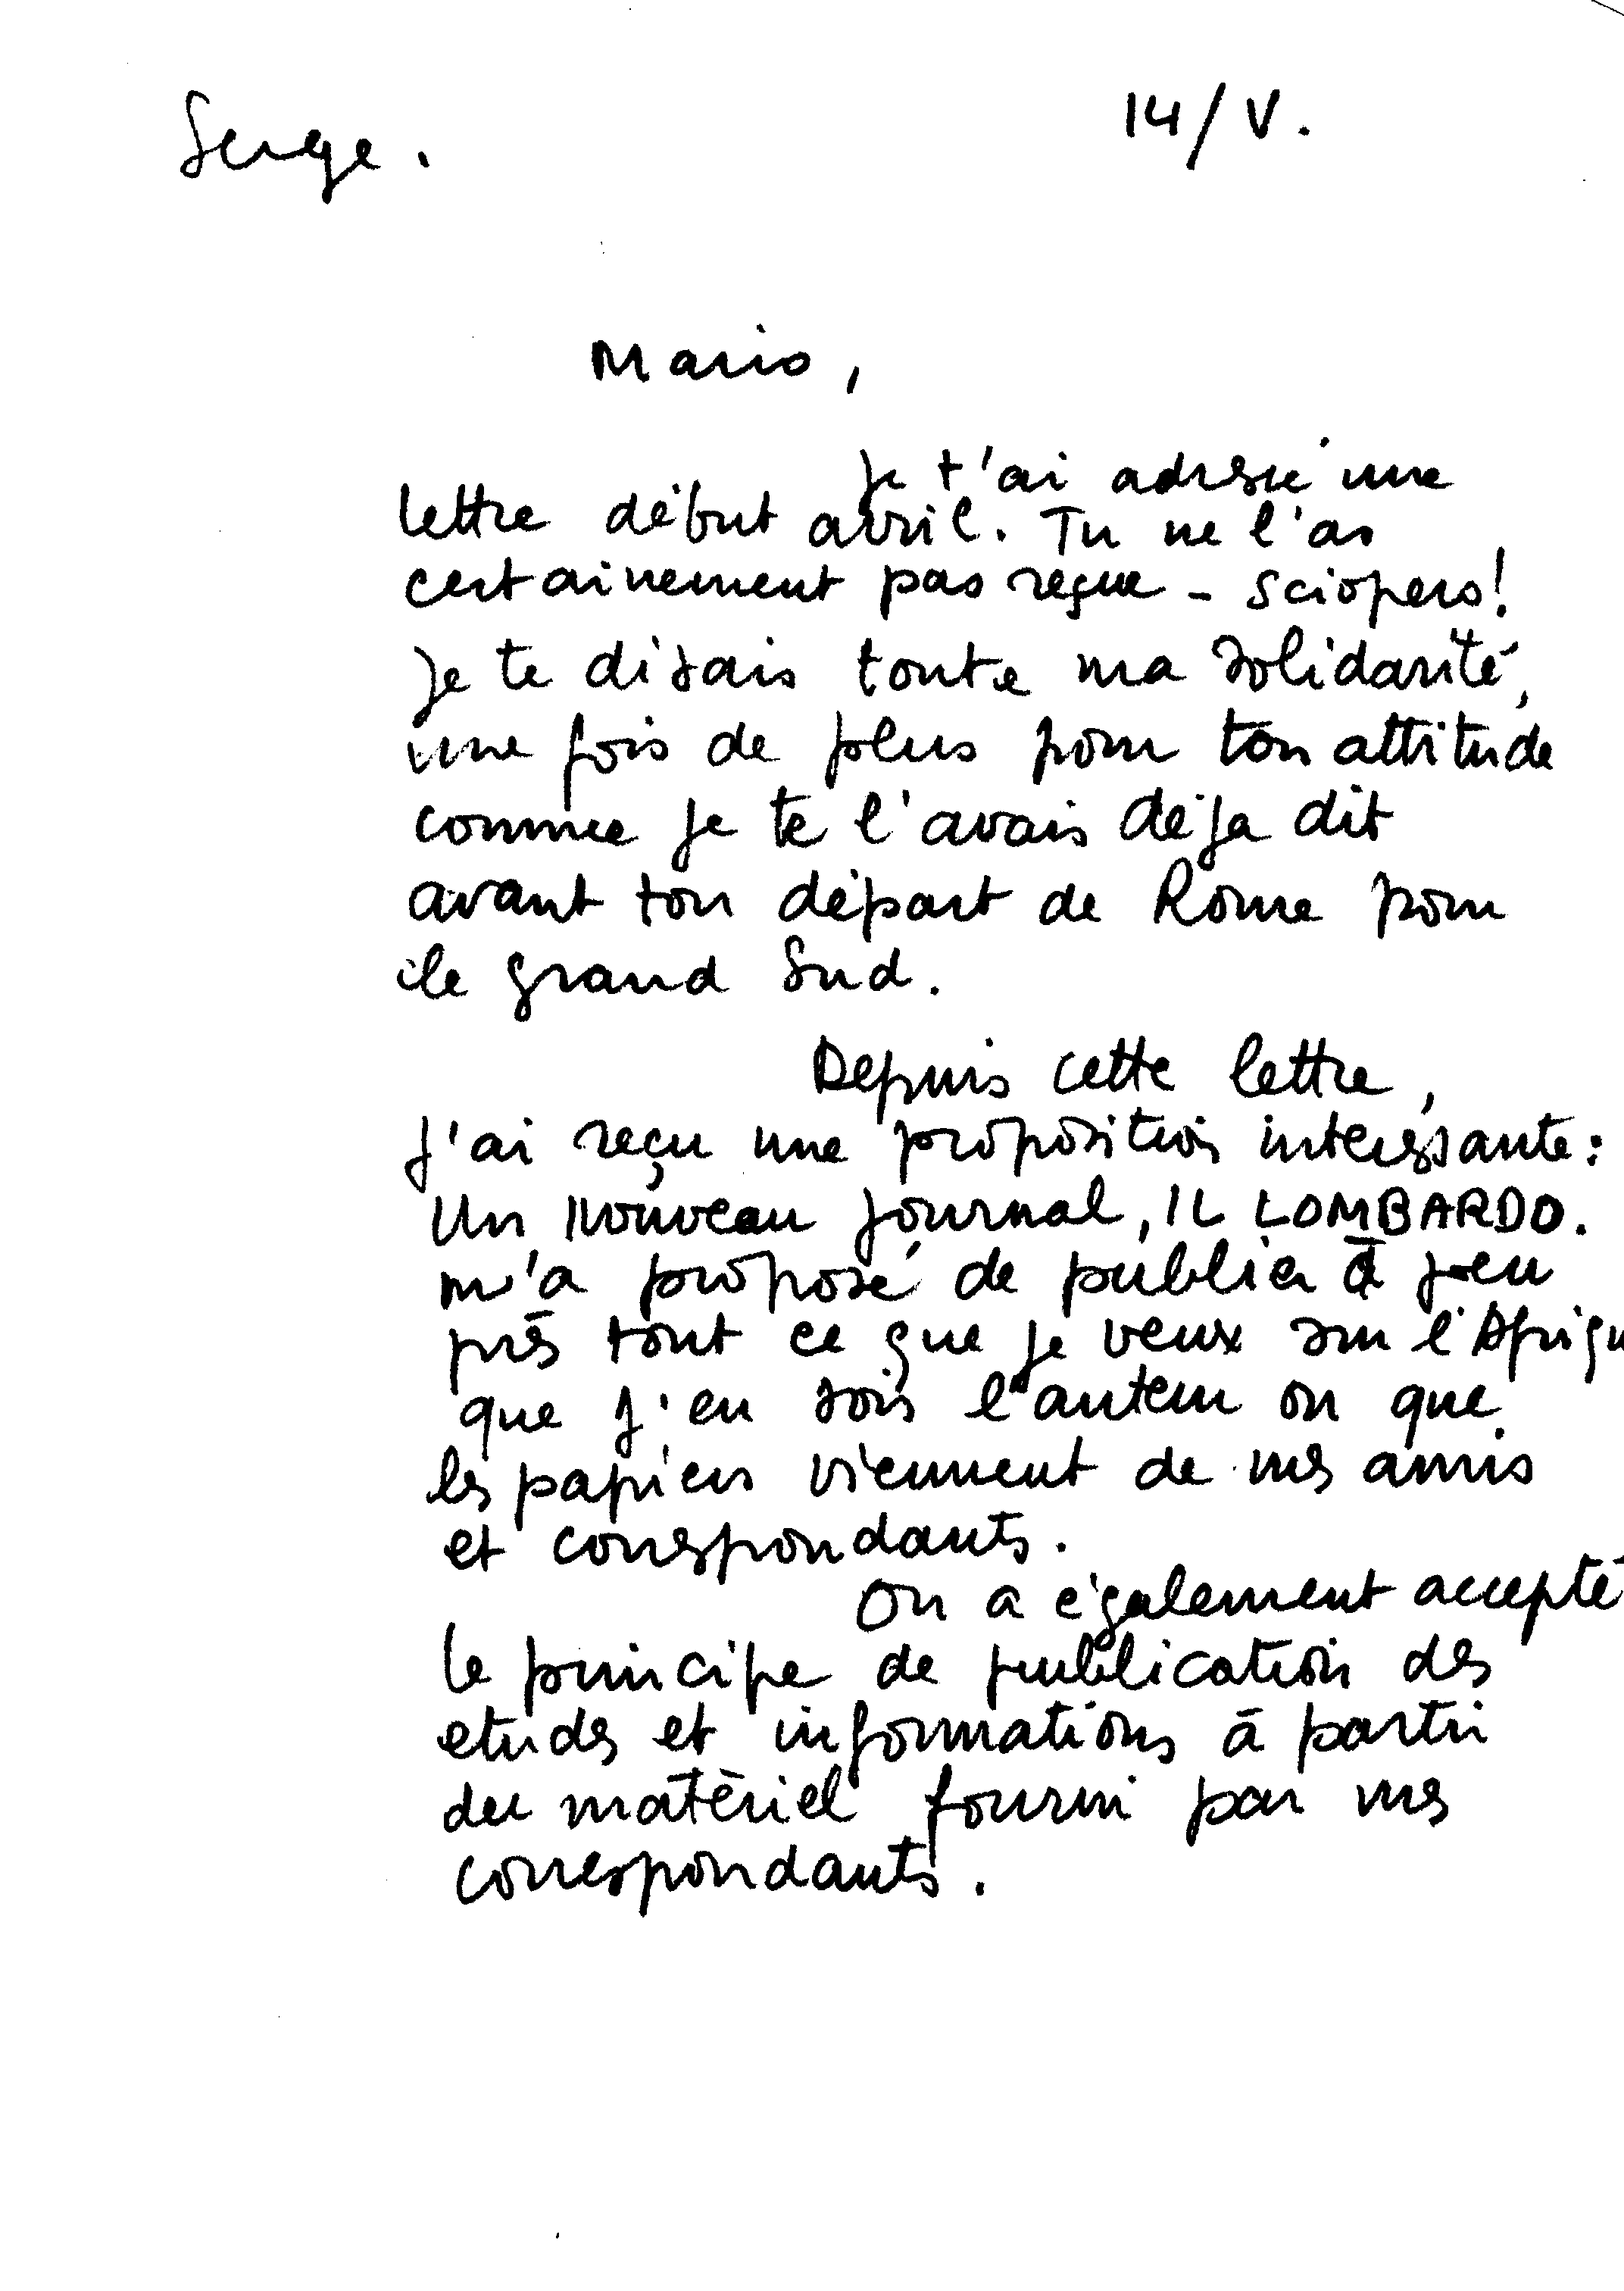 Serge.
14/V.
Mario,
Je t'ai adressé une
lettre début avril. Tu ne l'as
certainement pas reçue - sciopero!
Je te disais toute ma solidarité,
une fois de plus pour ton attitude
comme je te l'avais déja dit
avant ton départ de Rome pour
le grand Sud.
Depuis cette lettre,
J'ai reçu une proposition interessante:
Un nouveau journal, IL LOMBARDO.
m'a proposé de publier à peu
près tout ce que je veux sur l'Afriqu
que j'en sois l'auteur ou que
les papiers viennent de mes amis
et correspondants.
On a également accepté
le principe de publication des
etudes et informations à partir
du matèriel fourni par mes
correspondants.